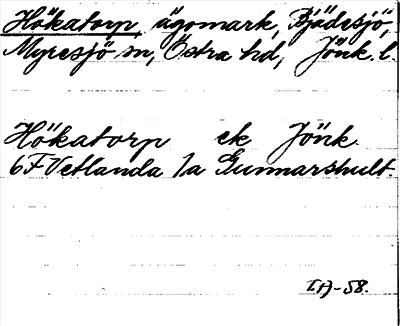 Hökatorp, ägomark, Bjädesjö,
Myresjö sn, Östra hd, Jönk. l.
Hökatorp ek Jönk.
6F Vetlanda 1a Gunnarshult.
I.A-58.